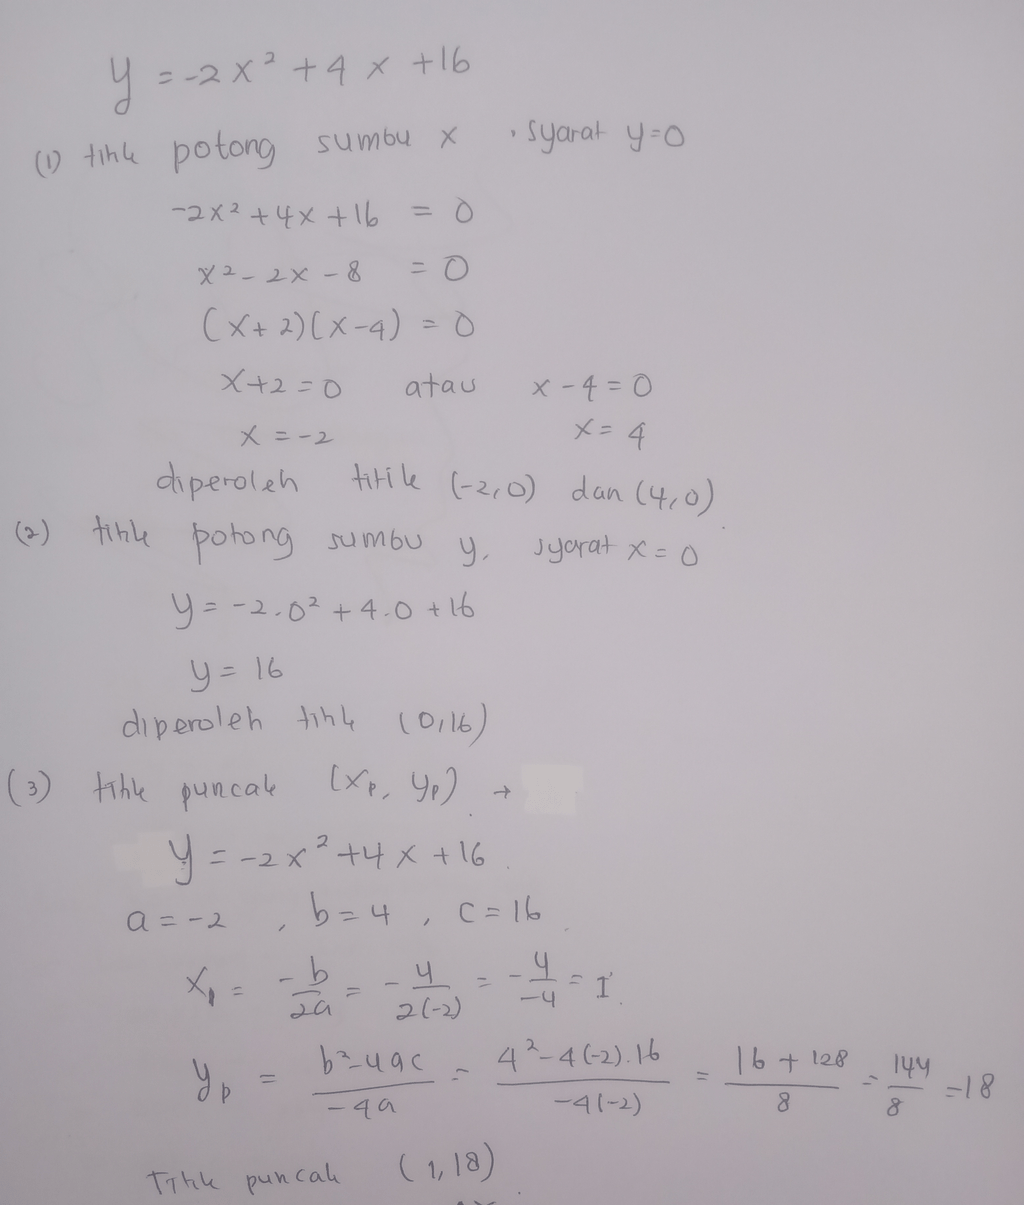 y = -2x² + 4x + 16
(1) titik potong sumbu x, syarat y=0
-2x² + 4x + 16 = 0
x² - 2x - 8 = 0
(x+2)(x-4) = 0
x+2=0 atau x-4=0
x=-2 x=4
diperoleh titik (-2,0) dan (4,0)
(2) titik potong sumbu y, syarat x=0
y = -2.0² + 4.0 + 16
y = 16
diperoleh titik (0,16)
(3) titik puncak (xp, yp) →
y = -2x² + 4x + 16
a = -2, b = 4, c = 16
xp = -b/2a = -4/2(-2) = -4/-4 = 1
yp = b²-4ac/-4a = 4²-4(-2).16/-4(-2) = 16+128/8 = 144/8 = 18
Titik puncak (1,18)